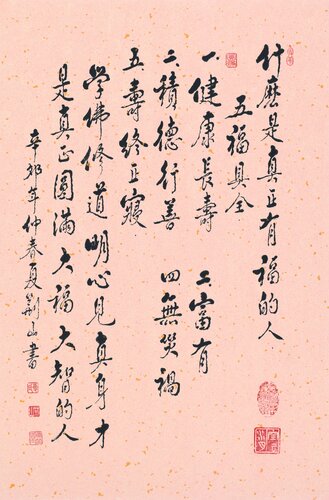 什麼是真正有福的人
五福具全
一、健康長壽 二、富有
三、積德行善 四、無災禍
五、壽終正寢
學佛修道明心見真身才
是真正圓滿大福大智的人
辛卯年仲春夏荊山書